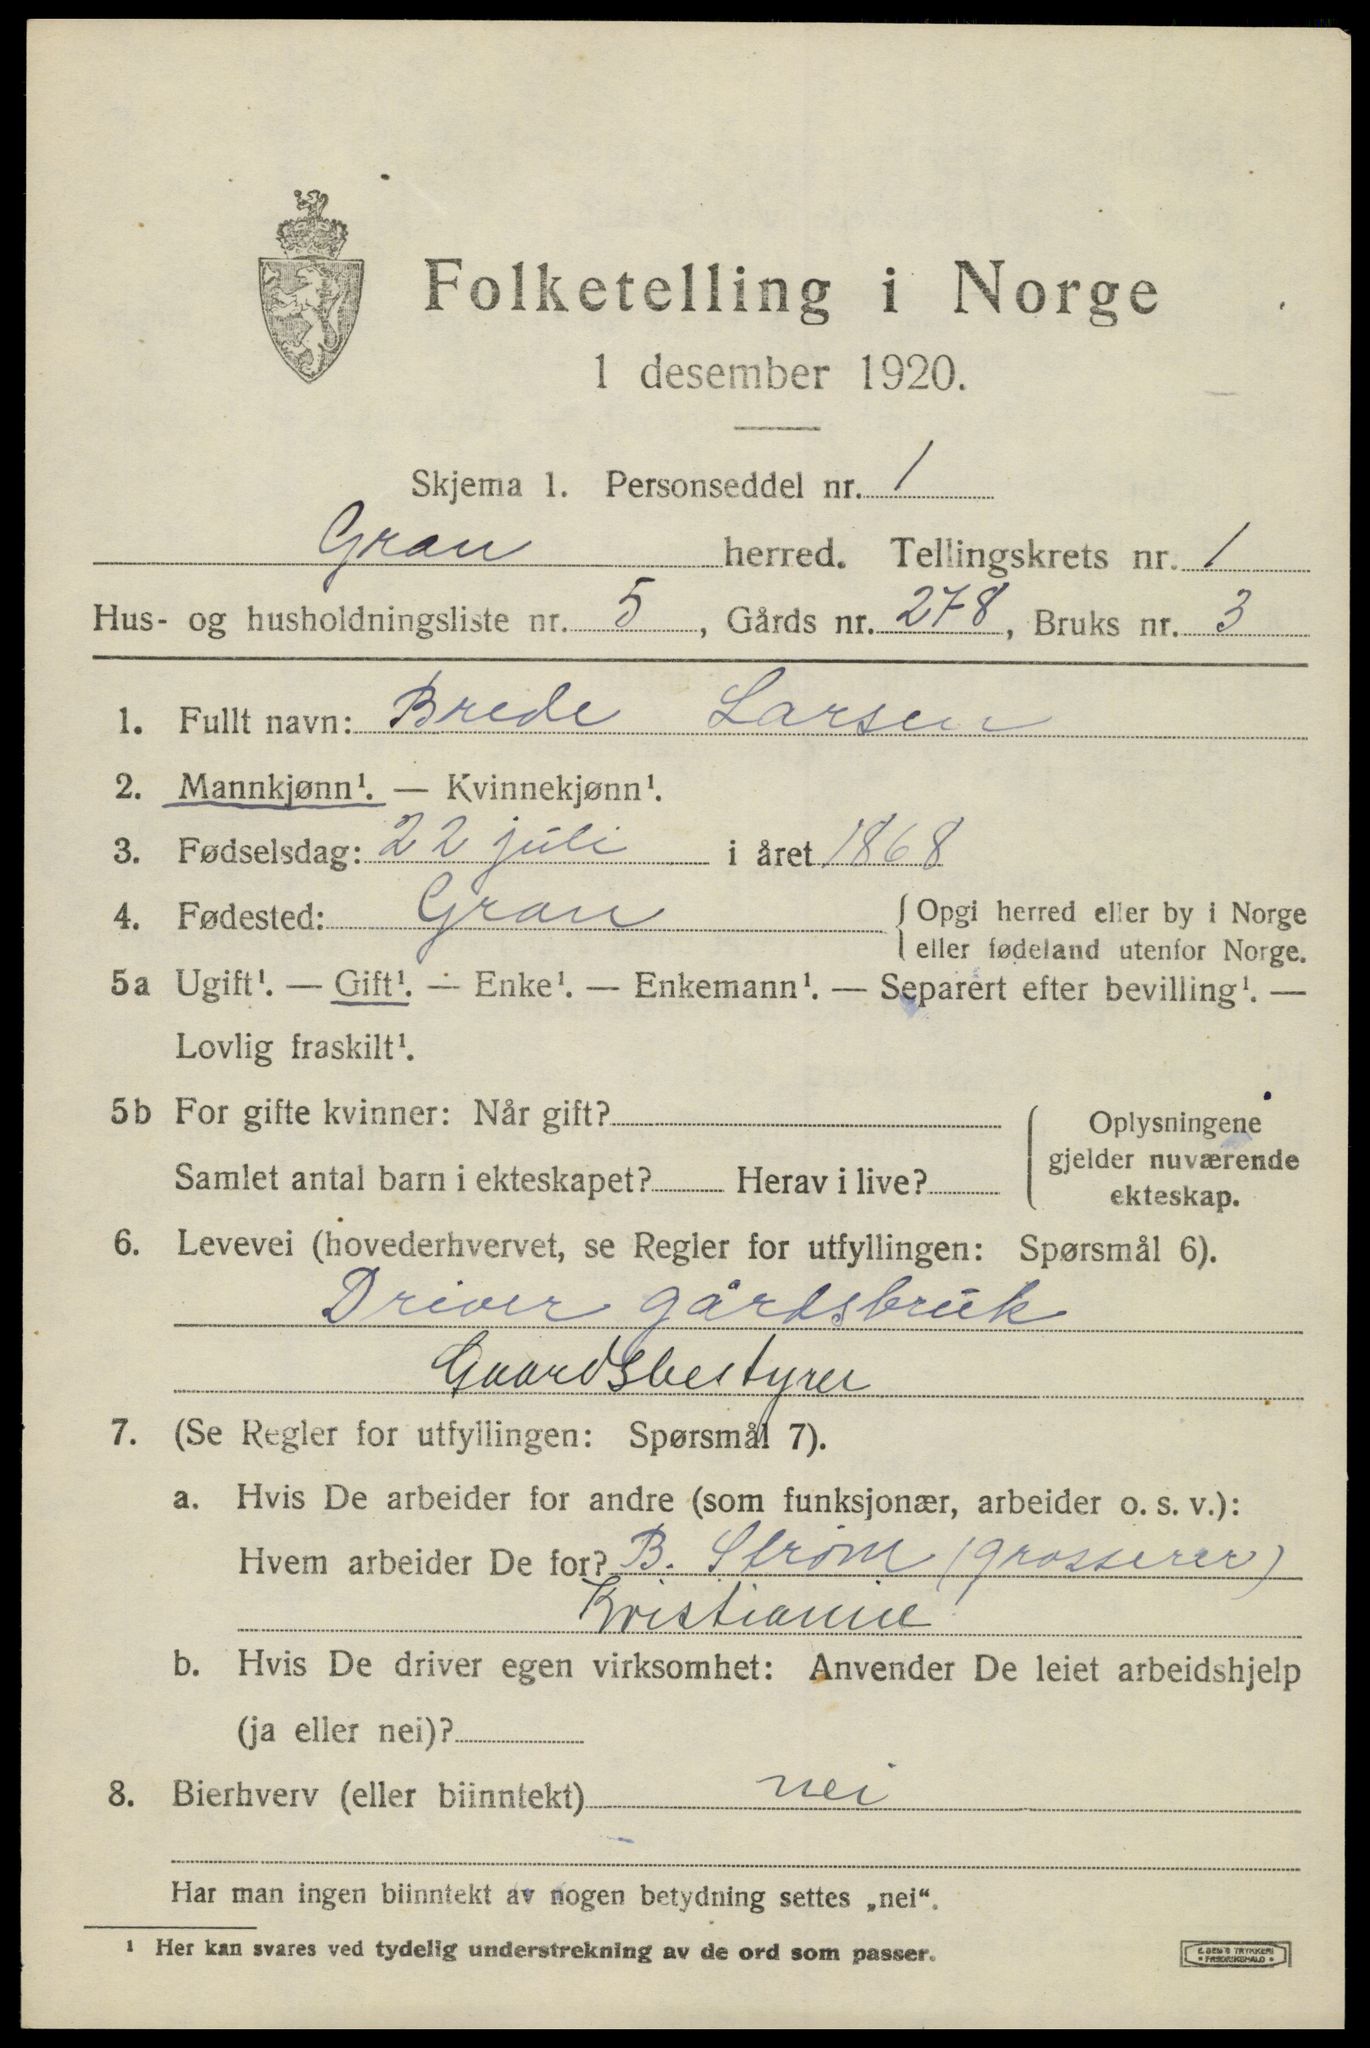 Folketelling i Norge
1 desember 1920.
Skjema 1. Personseddel nr. 1
Gran herred. Tellingskrets nr. 1
Hus- og husholdningsliste nr. 5, Gårds nr. 278, Bruks nr. 3
1. Fullt navn: Brede Larsen
2. Mannkjønn¹. — Kvinnekjønn¹.
3. Fødselsdag: 22 juli i året 1868
4. Fødested: Gran
{Opgi herred eller by i Norge
eller fødeland utenfor Norge.
5a Ugift¹. — Gift¹. — Enke¹. — Enkemann¹. — Separert efter bevilling¹. —
Lovlig fraskilt¹.
5b For gifte kvinner: Når gift?
Samlet antal barn i ekteskapet? Herav i live?
Oplysningene
gjelder nuværende
ekteskap.
6. Levevei (hovederhvervet, se Regler for utfyllingen: Spørsmål 6).
Driver gårdsbruk
Gaardsbestyrer
7. (Se Regler for utfyllingen: Spørsmål 7).
a. Hvis De arbeider for andre (som funksjonær, arbeider o. s. v.):
Hvem arbeider De for? B. Strøm (grosserer)
Kristiania
b. Hvis De driver egen virksomhet: Anvender De leiet arbeidshjelp
(ja eller nei)?
8. Bierhverv (eller biinntekt) nei
Har man ingen biinntekt av nogen betydning settes „nei“.
¹ Her kan svares ved tydelig understrekning av de ord som passer.
E. SEM'S TRYKKERI
• FREDRIKSHALD •